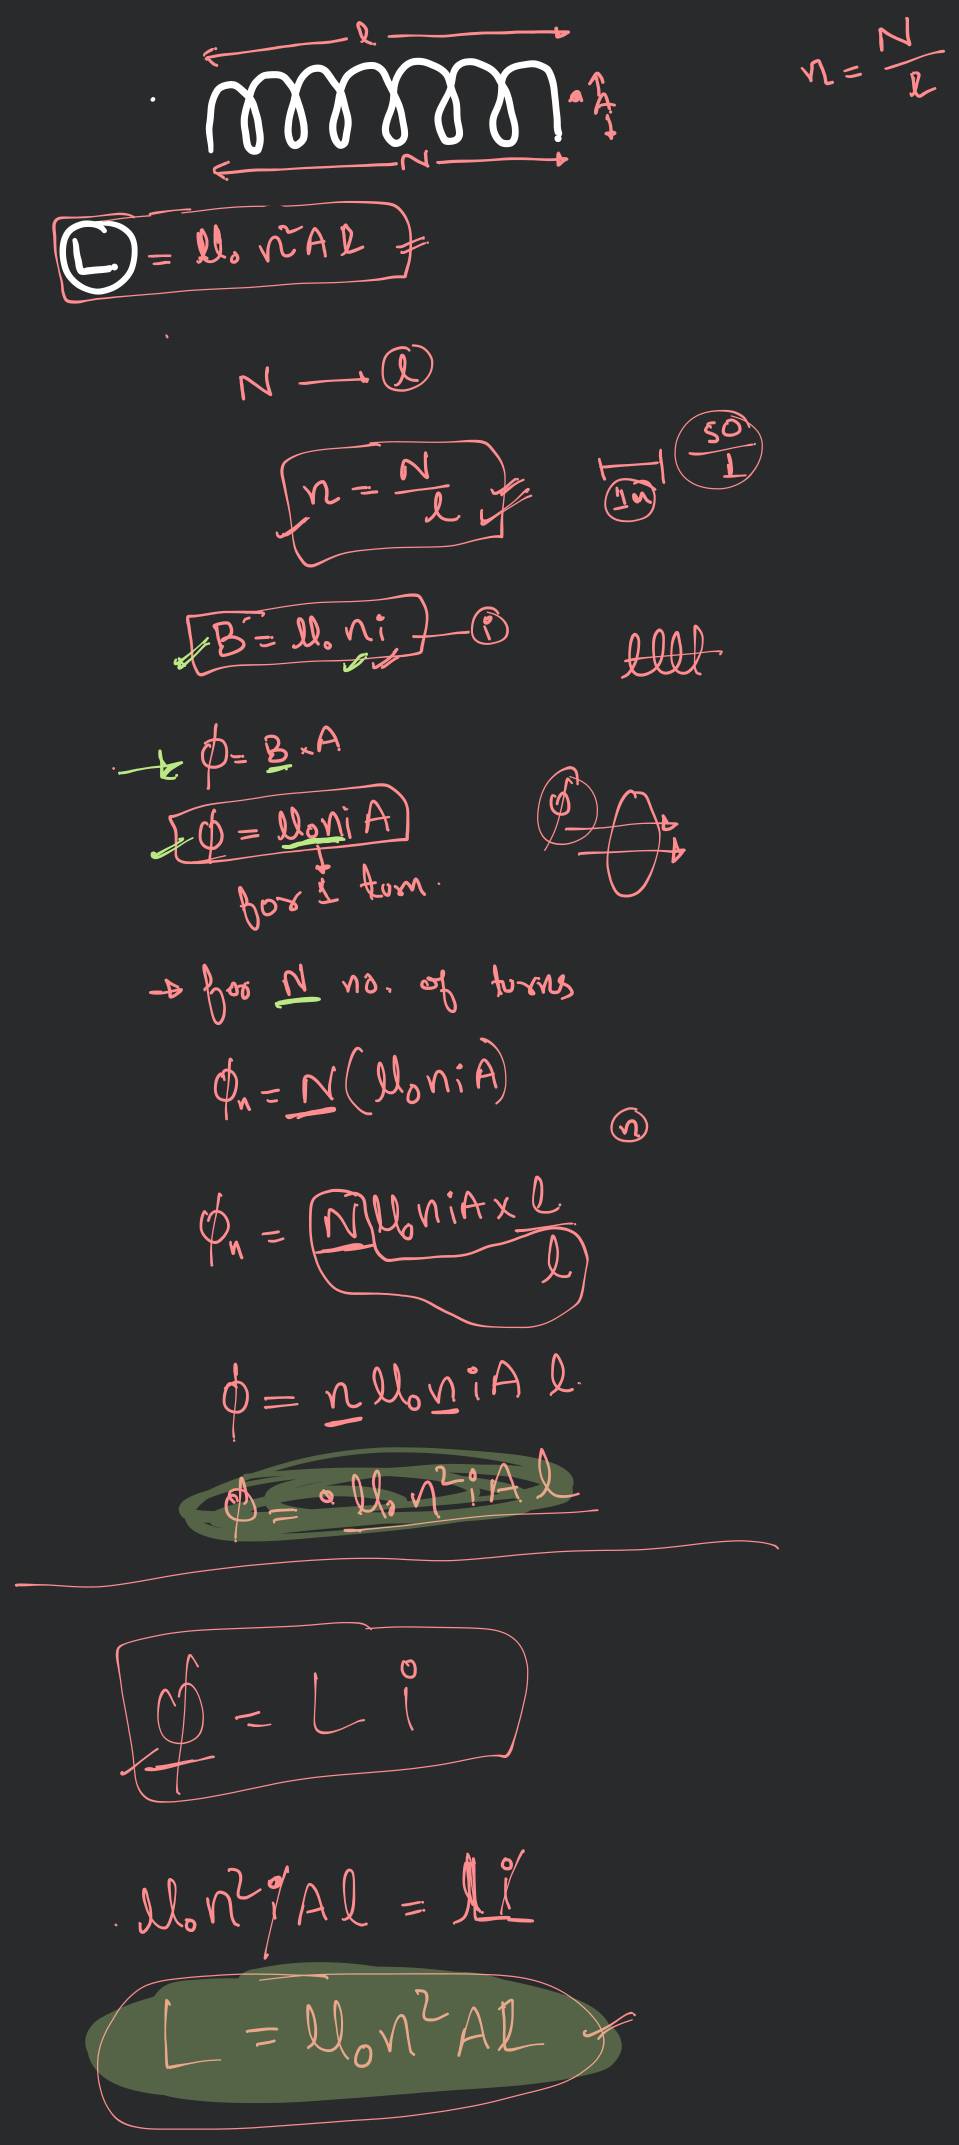 l
n = N/l
A
N
L = μ₀ n² A l
N → l
n = N/l
1m
50/1
B = μ₀ n i — i
ϕ = B × A
ϕ = μ₀ n i A
ϕ
for 1 turn.
→ for N no. of turns
ϕₙ = N (μ₀ n i A)
n
ϕₙ = N μ₀ n i A × l/l
ϕ = n μ₀ n i A l.
ϕ = μ₀ n² i A l
ϕ = L i
μ₀ n² i A l = L i
L = μ₀ n² A l